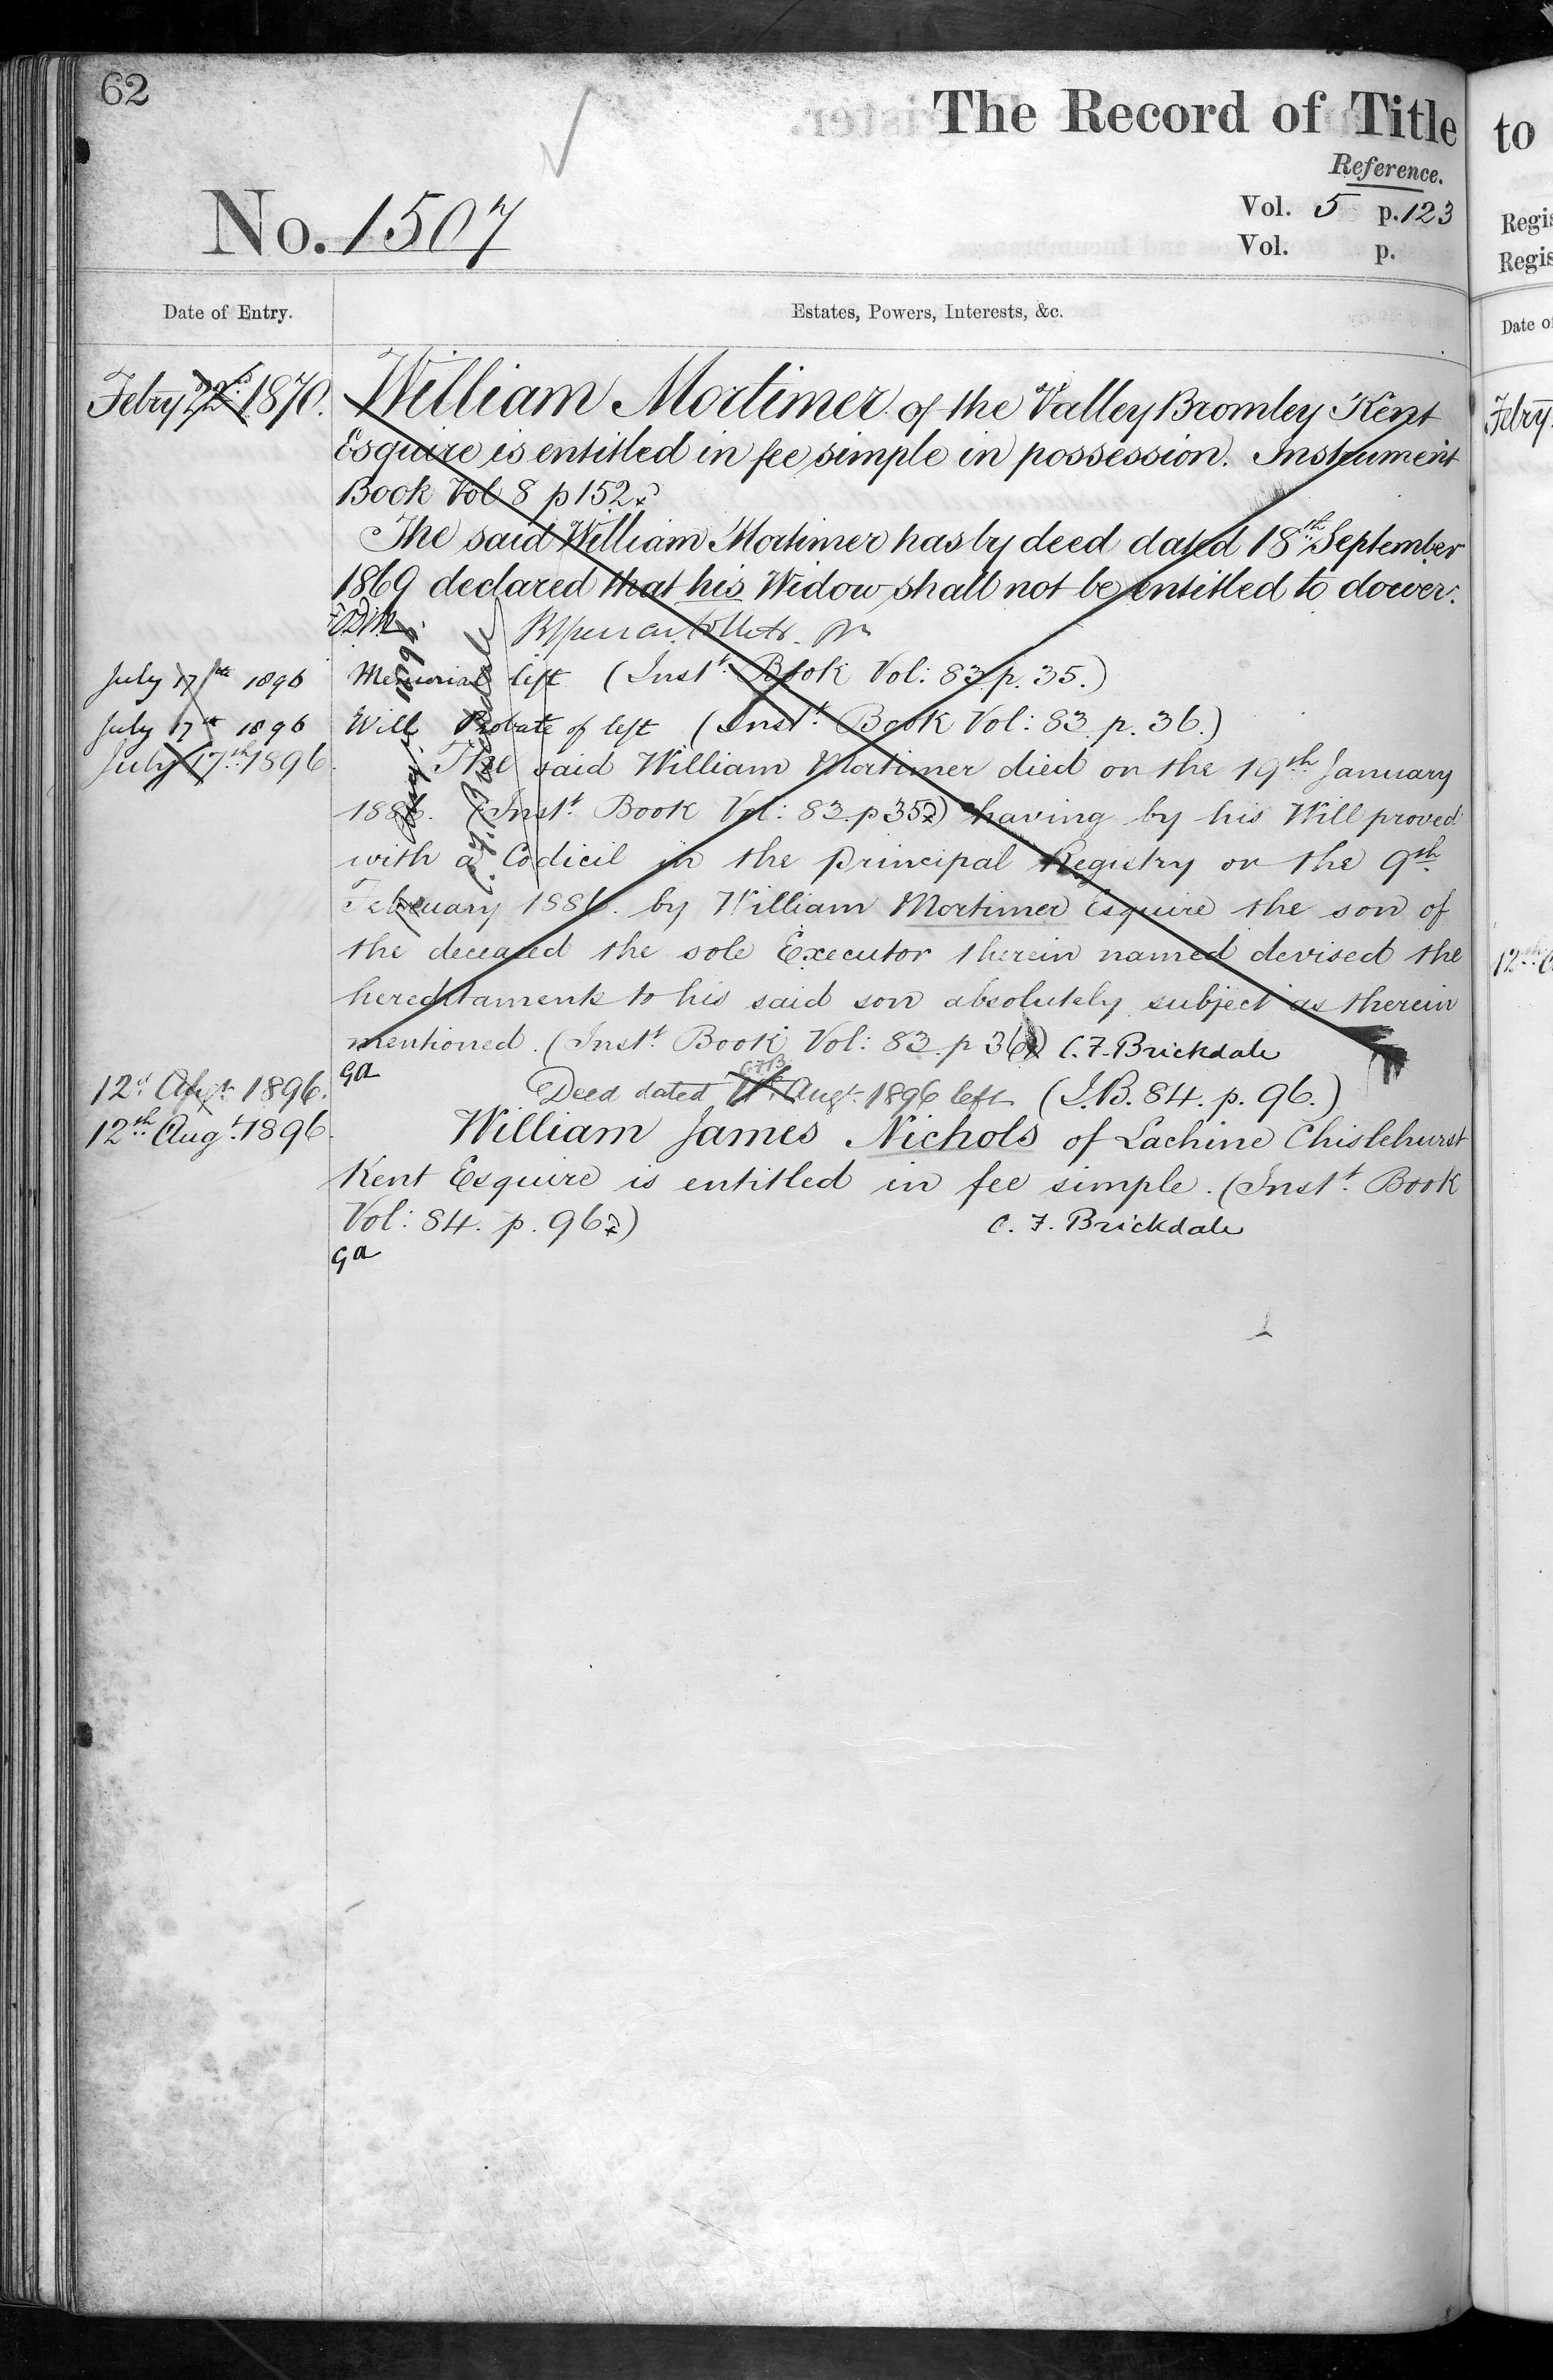 62
The Record of Title
Reference.
No. 1507
Vol. 5 p. 123
Vol. p.
Date of Entry. Estates, Powers, Interests, &c.
Febry 22nd 1870. William Mortimer of the Valley Bromley Kent
Esquire is entitled in fee simple in possession. Instrument
Book Vol 8 p 152.
The said William Mortimer has by deed dated 18th September
1869 declared that his Widow shall not be entitled to dower.
July 17th 1896 Memorial left (Inst. Book Vol: 83 p. 35.)
July 17th 1896 Will Probate of left (Inst. Book Vol: 83 p. 36.)
July 17th 1896. The said William Mortimer died on the 19th January
1886. (Inst. Book Vol: 83. p 35) having by his Will proved
with a Codicil in the Principal Registry on the 9th
February 1886. by William Mortimer Esquire the son of
the deceased the sole Executor therein named devised the
hereditaments to his said son absolutely subject as therein
mentioned. (Inst. Book Vol: 83. p 36) C. F. Brickdale
GA
C.F.B.
12th Augt. 1896. Deed dated Augt. 1896 left (I.B. 84. p. 96.)
12th Augt. 1896. William James Nichols of Lachine Chislehurst
Kent Esquire is entitled in fee simple. (Inst. Book
Vol: 84. p. 96) C. F. Brickdale
GA
C. F. Brickdale
to
Regis
Regis
Date of
Febry
12th